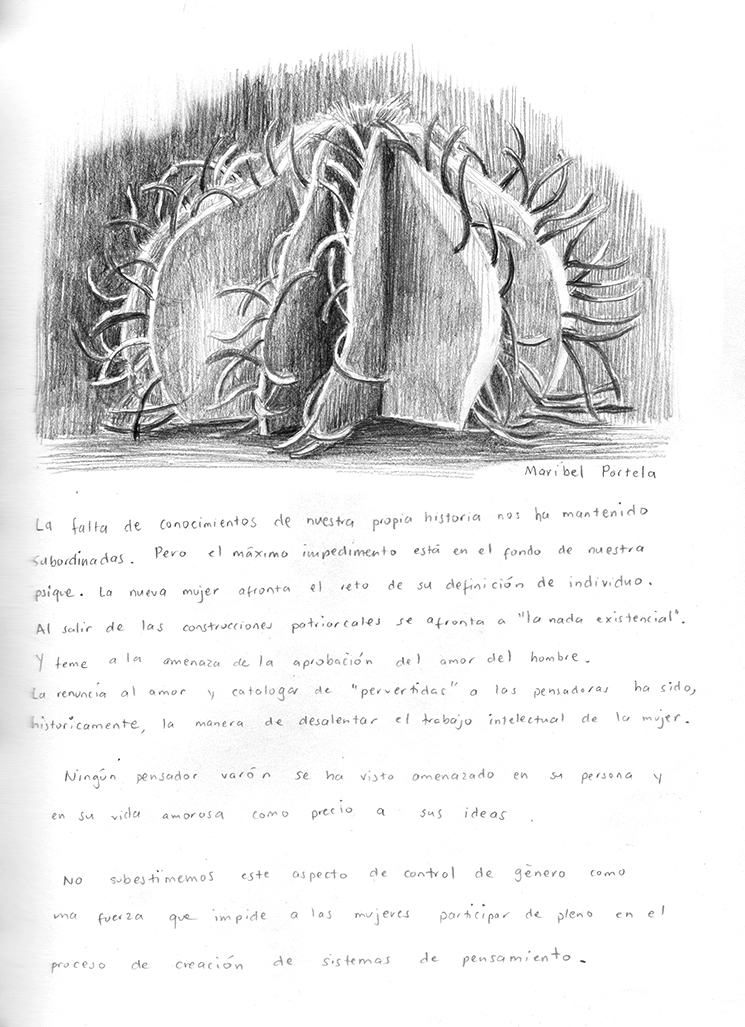 Maribel Portela
La falta de conocimientos de nuestra propia historia nos ha mantenido
subordinadas. Pero el máximo impedimento está en el fondo de nuestra
psique. La nueva mujer afronta el reto de su definición de individuo.
Al salir de las construcciones patriarcales se afronta a "la nada existencial".
Y teme a la amenaza de la aprobación del amor del hombre.
La renuncia al amor y catalogar de "pervertidas" a las pensadoras ha sido,
historicamente, la manera de desalentar el trabajo intelectual de la mujer.
Ningún pensador varón se ha visto amenazado en su persona y
en su vida amorosa como precio a sus ideas.
No subestimemos este aspecto de control de género como
una fuerza que impide a las mujeres participar de pleno en el
proceso de creación de sistemas de pensamiento.